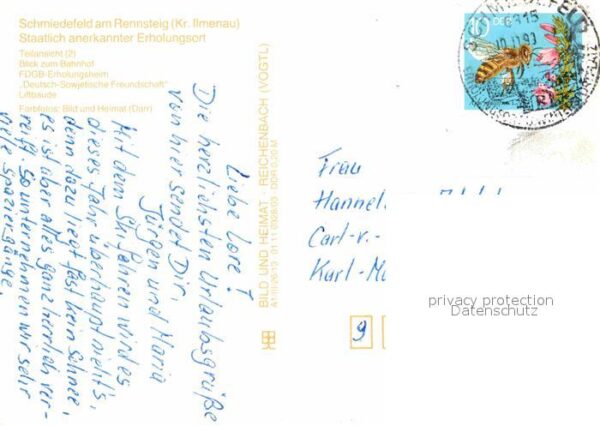 Schmiedefeld am Rennsteig (Kr. Ilmenau)
Staatlich anerkannter Erholungsort
Teilansicht (2)
Blick zum Bahnhof
FDGB-Erholungsheim
„Deutsch-Sowjetische Freundschaft"
Liftbaude
Farbfotos: Bild und Heimat (Darr)
BILD UND HEIMAT · REICHENBACH (VOGTL)
DDR 0,20 M
Liebe Lore!
Die herzlichsten Urlaubsgrüße
von hier sendet Dir,
Jürgen und Maria
Mit dem Skifahren wird es
dieses Jahr überhaupt nichts,
denn dazu liegt fast kein Schnee,
es ist aber alles ganz herrlich ver-
reift. So unternehmen wir sehr
viele Spaziergänge.
10 DDR
Frau
Hannel
Carl-v.-
Karl-M
9
privacy protection
Datenschutz